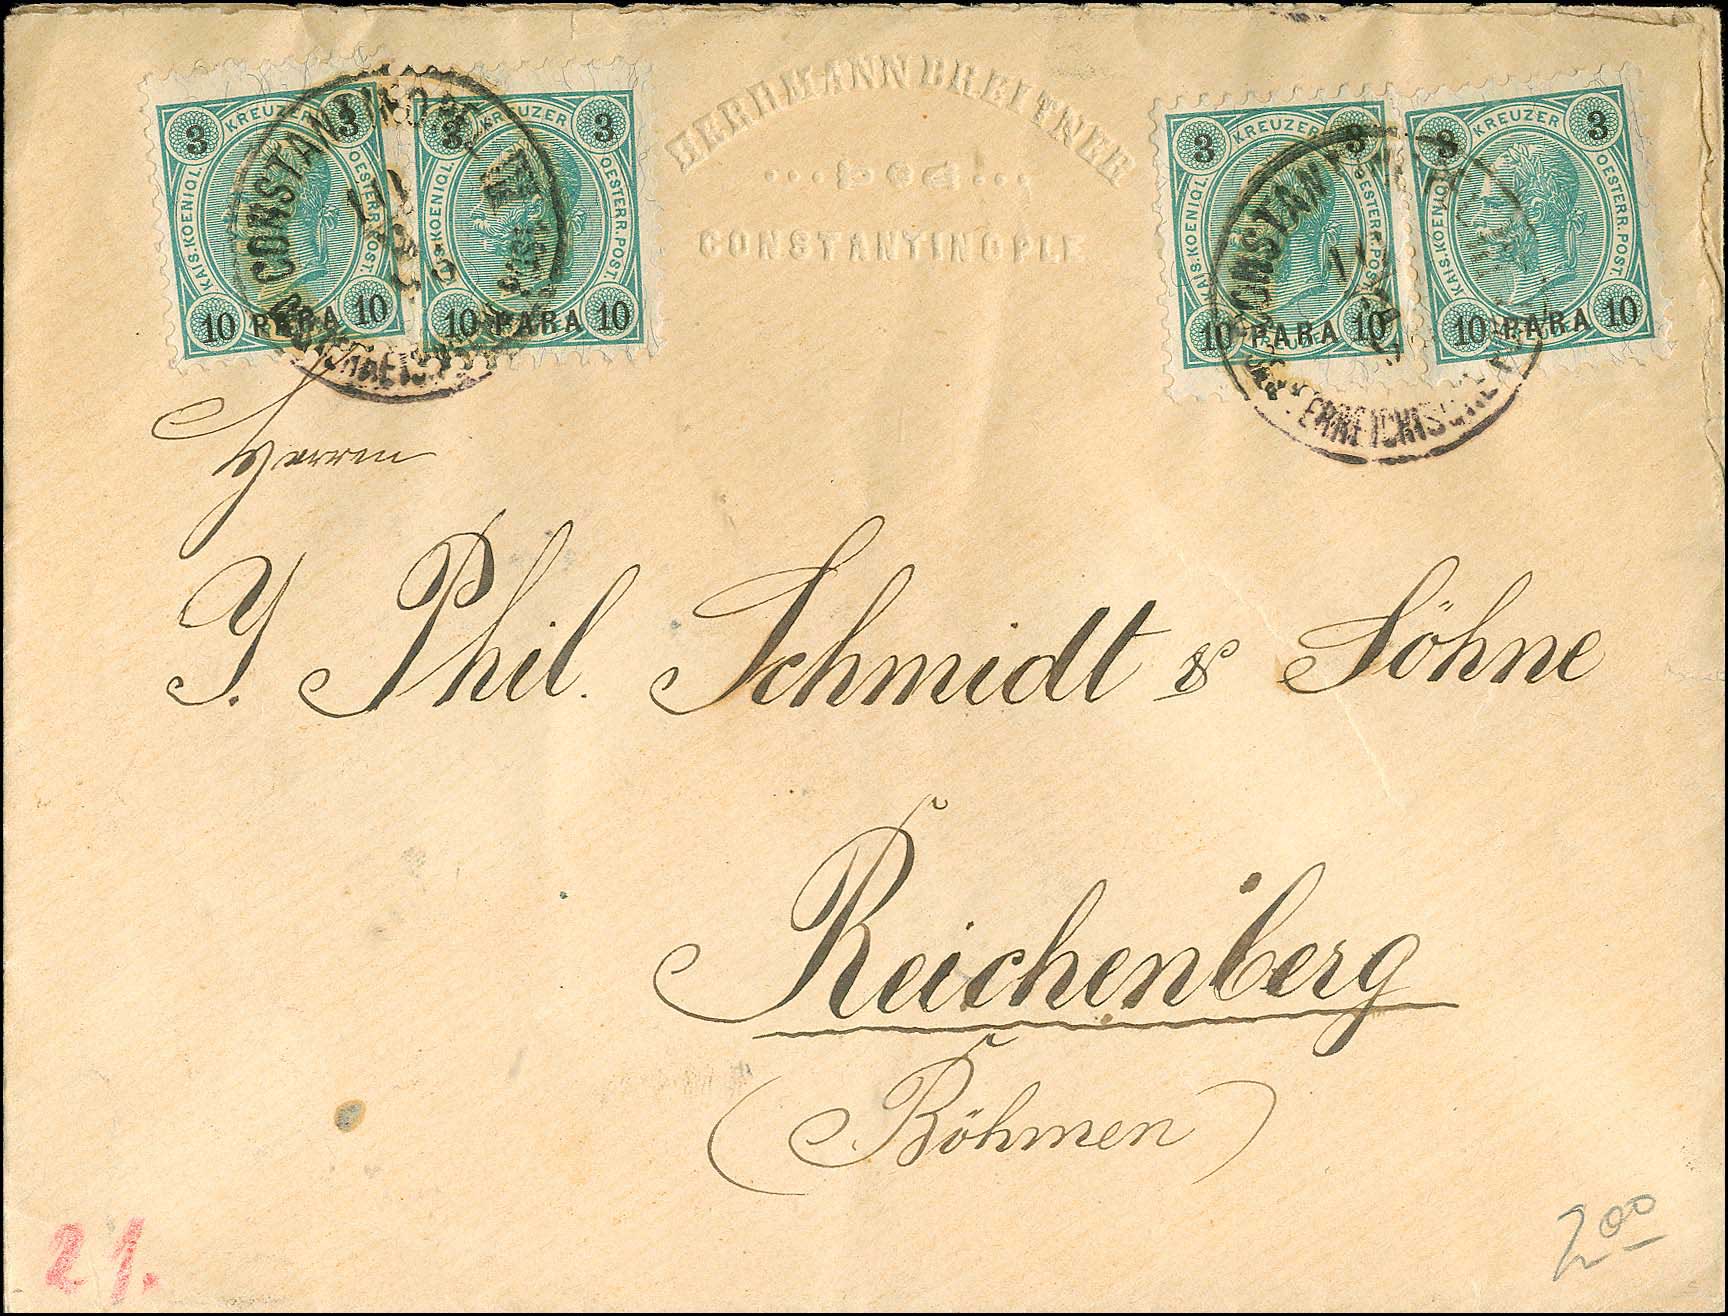 HERRMANN BREITNER
CONSTANTINOPLE
3 KREUZER 3
KAIS. KOENIGL. OESTERR. POST.
10 PARA 10
3 KREUZER 3
KAIS. KOENIGL. OESTERR. POST.
10 PARA 10
3 KREUZER 3
KAIS. KOENIGL. OESTERR. POST.
10 PARA 10
3 KREUZER 3
KAIS. KOENIGL. OESTERR. POST.
10 PARA 10
CONSTANTINOPEL
Herren
J. Phil. Schmidt & Söhne
Reichenberg
(Böhmen)
21.
2 00